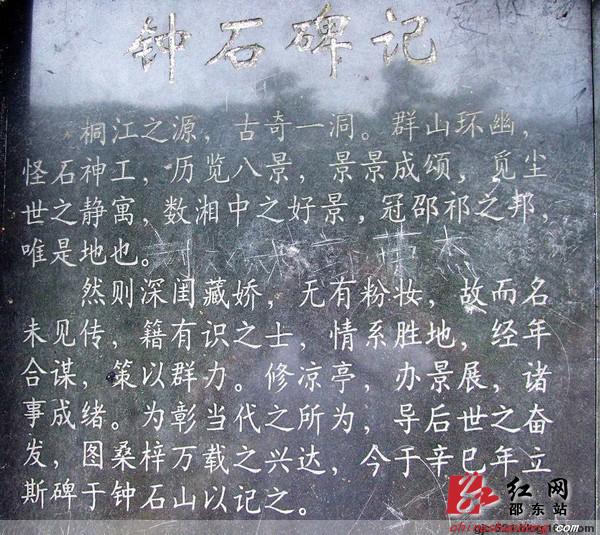 钟石碑记
桐江之源，古奇一洞。群山环幽，
怪石神工，历览八景，景景成颂，觅尘
世之静寓，数湘中之好景，冠邵祁之邦，
唯是地也。
然则深闺藏娇，无有粉妆，故而名
未见传，籍有识之士，情系胜地，经年
合谋，策以群力。修凉亭，办景展，诸
事成绪。为彰当代之所为，导后世之奋
发，图桑梓万载之兴达，今于辛巳年立
斯碑于钟石山以记之。
红网
邵东站